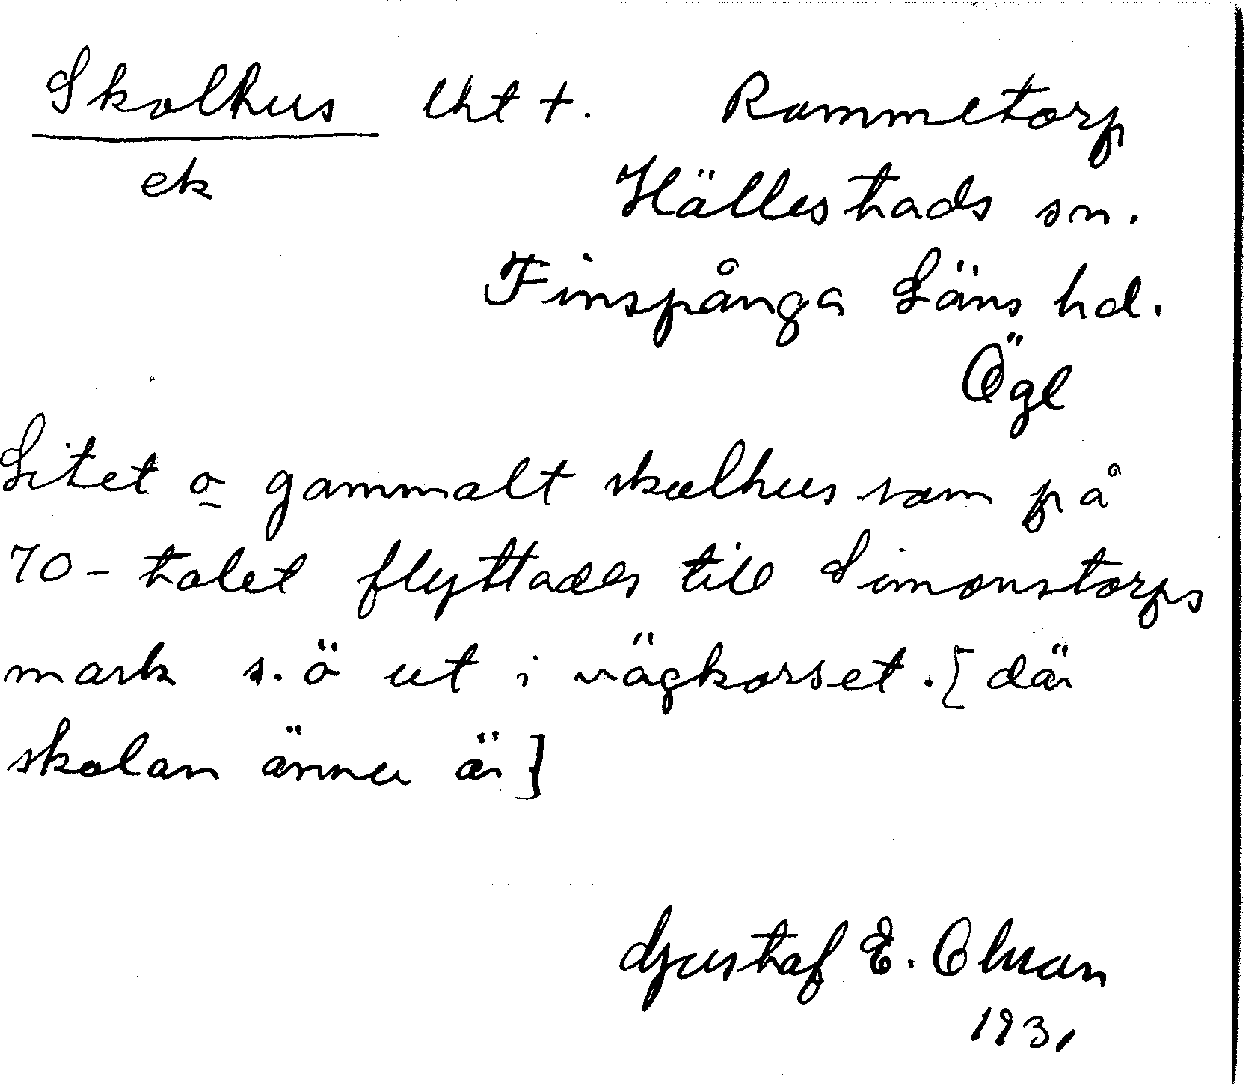 Skolhus lht +. Rammetorp
ek
Hällestads sn.
Finspånga Läns hd.
Ögl
Litet o gammalt skolhus som på
70-talet flyttades till Simonstorps
mark s.ö ut i vägkorset. [där
skolan ännu är]
Gustaf E. Olsson
1931